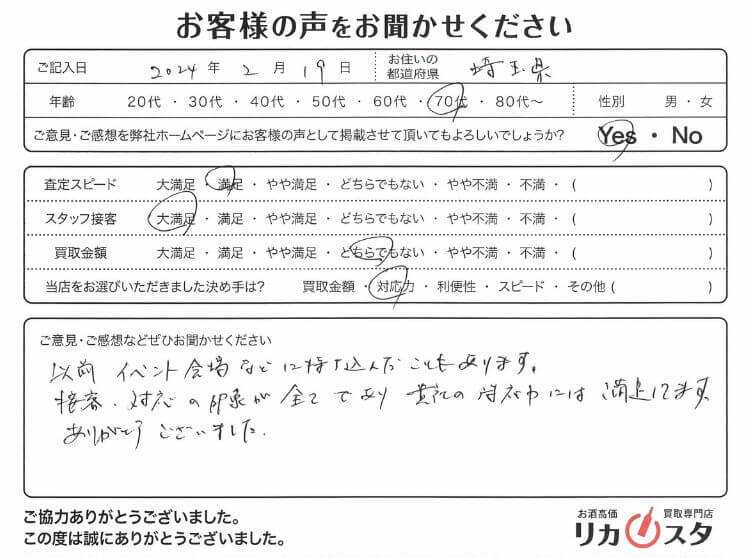 お客様の声をお聞かせください
ご記入日 2024年 2月 19日 お住いの都道府県 埼玉県
年齢 20代・30代・40代・50代・60代・70代・80代〜 性別 男・女
ご意見・ご感想を弊社ホームページにお客様の声として掲載させて頂いてもよろしいでしょうか? Yes・No
査定スピード 大満足・満足・やや満足・どちらでもない・やや不満・不満・( )
スタッフ接客 大満足・満足・やや満足・どちらでもない・やや不満・不満・( )
買取金額 大満足・満足・やや満足・どちらでもない・やや不満・不満・( )
当店をお選びいただきました決め手は? 買取金額・対応力・利便性・スピード・その他( )
ご意見・ご感想などぜひお聞かせください
以前 イベント会場などに持ち込んだこともあります。
接客・対応の印象が全てであり 貴社の対応力には満足してます。
ありがとうございました。
ご協力ありがとうございました。
この度は誠にありがとうございました。
お酒高価 買取専門店
リカスタ